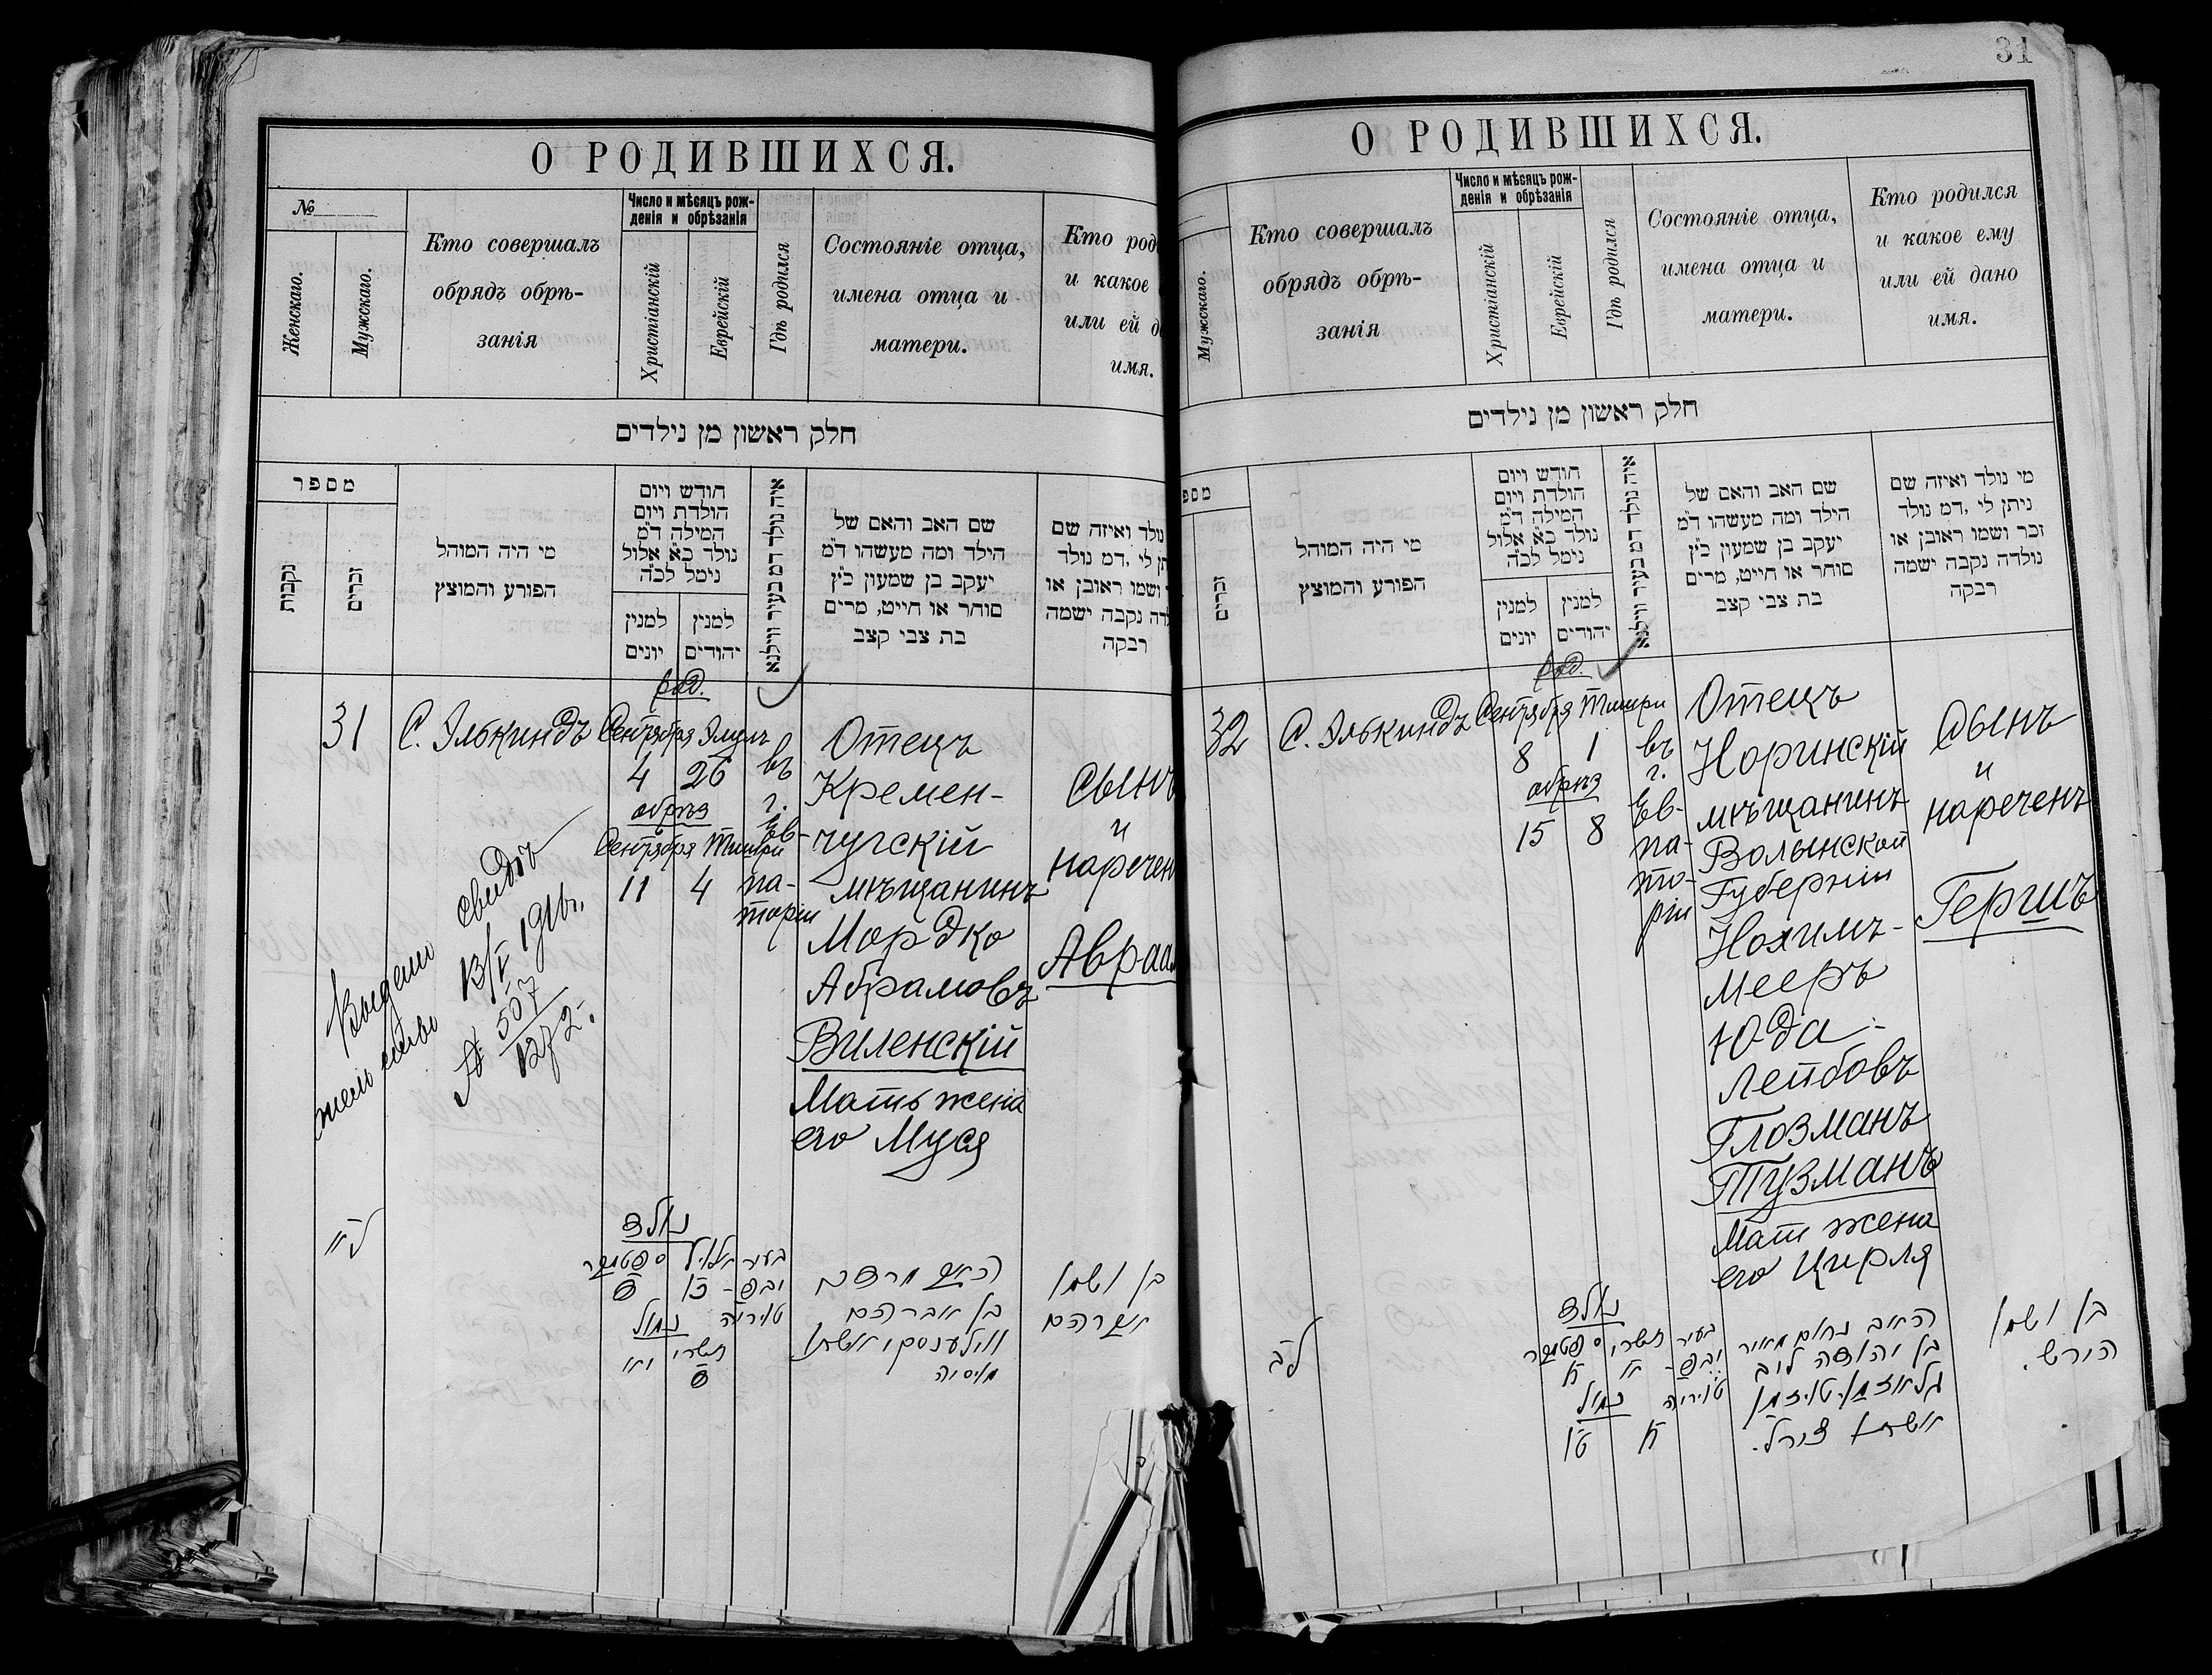 О РОДИВШИХСЯ.
№
Женскаго.
Мужскаго.
Кто совершалъ
обрядъ обрѣ-
занія
Число и мѣсяцъ рож-
денія и обрѣзанія
Христіанскій
Еврейскій
Гдѣ родился
Состояніе отца,
имена отца и
матери.
Кто род
и какое
или ей д
имя.
חלק ראשון מן נילדים
מספר
נקבות
זכרים
מי היה המוהל
הפורע והמוצץ
חודש ויום
הולדת ויום
המילה ד״מ
נולד כ״א אלול
נימל לכ״ה
למנין
יונים
למנין
יהודים
איה נולד דמ בעיר ווילנא
שם האב והאם של
הילד ומה מעשהו ד״מ
יעקב בן שמעון כ״ץ
סוחר או חייט, מרים
בת צבי קצב
נולד ואיזה שם
תן לי ,דמ נולד
ושמו ראובן או
לדה נקבה ישמה
רבקה
род.
31 С. Элькиндъ Сентября Элулъ
4 26
обрѣз
Сентября Тишри
11 4
въ
г.
Ев-
па-
торіи
Отецъ
Кремен-
чугскій
мѣщанинъ
Мордко
Абрамовъ
Виленскій
Мать жена
его Муся
Сынъ
и
наречен
Авраа
Выдано свидѣ-
тельство 13/V 1916г.
№ 507
נולד
ספטמבר
אלול
בעיר
נמול
תשרי
האב מרדכי
בן אברהם
ווילענסקי ואשתו
מוסיה
בן ושמו
אברהם
31
О РОДИВШИХСЯ.
Мужскаго.
Кто совершалъ
обрядъ обрѣ-
занія
Число и мѣсяцъ рож-
денія и обрѣзанія
Христіанскій
Еврейскій
Гдѣ родился
Состояніе отца,
имена отца и
матери.
Кто родился
и какое ему
или ей дано
имя.
חלק ראשון מן נילדים
מספ
זכרים
מי היה המוהל
הפורע והמוצץ
חודש ויום
הולדת ויום
המילה ד״מ
נולד כ״א אלול
נימל לכ״ה
למנין
יונים
למנין
יהודים
איה נולד דמ בעיר ווילנא
שם האב והאם של
הילד ומה מעשהו ד״מ
יעקב בן שמעון כ״ץ
סוחר או חייט, מרים
בת צבי קצב
מי נולד ואיזה שם
ניתן לי ,דמ נולד
זכר ושמו ראובן או
נולדה נקבה ישמה
רבקה
род.
32 С. Элькиндъ Сентября Тишри
8 1
обрѣз
15 8
въ
г.
Ев-
па-
то-
ріи
Отецъ
Норинскій
мѣщанинъ
Волынской
Губерніи
Нохимъ-
Мееръ
Юда-
Лейбовъ
Глозманъ
Тузманъ
Мат жена
его Цирля
Сынъ
и
нареченъ
Гершъ
ל״ב
נולד
ספטמבר
תשרי
בעיר
נמול
האב נחום מאיר
בן יהודה ליב
גלאזמן-טוזמן
ואשתו צירל.
בן ושמו
הירש.